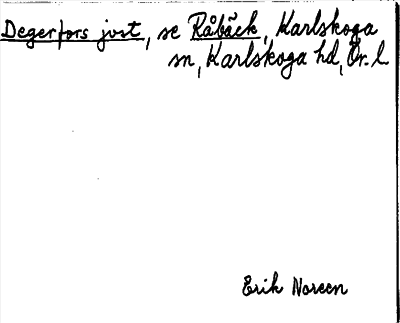 Degerfors just, se Råbäck, Karlskoga
sn, Karlskoga hd, Ör. l.
Erik Noreen